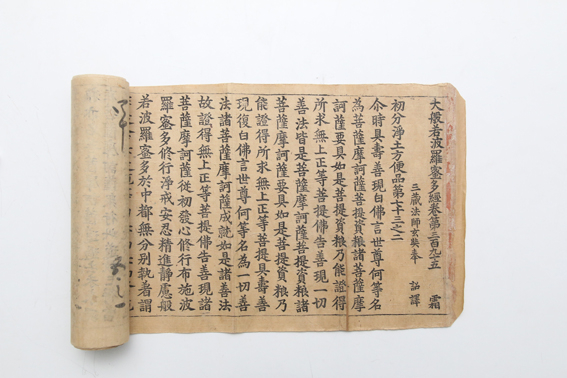 大般若波羅蜜多經卷第三百九十五 霜
三藏法師玄奘奉 詔譯
初分淨土方便品第七十三之二
尒時具壽善現白佛言世尊何等名
為菩薩摩訶薩菩提資粮諸菩薩摩
訶薩要具如是菩提資粮乃能證得
所求無上正等菩提佛告善現一切
善法皆是菩薩摩訶薩菩提資粮諸
菩薩摩訶薩要具如是菩提資粮乃
能證得所求無上正等菩提具壽善
現復白佛言世尊何等名為一切善
法諸菩薩摩訶薩成就如是諸善法
故證得無上正等菩提佛告善現諸
菩薩摩訶薩從初發心修行布施波
羅蜜多修行淨戒安忍精進靜慮般
若波羅蜜多於中都無分別執著謂